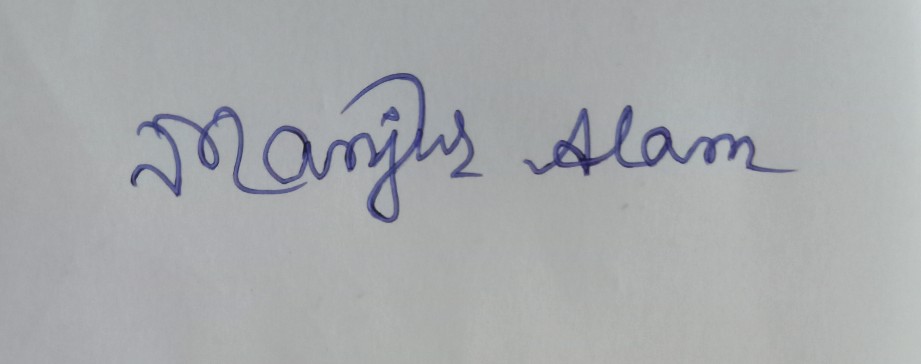 Manjur Alam